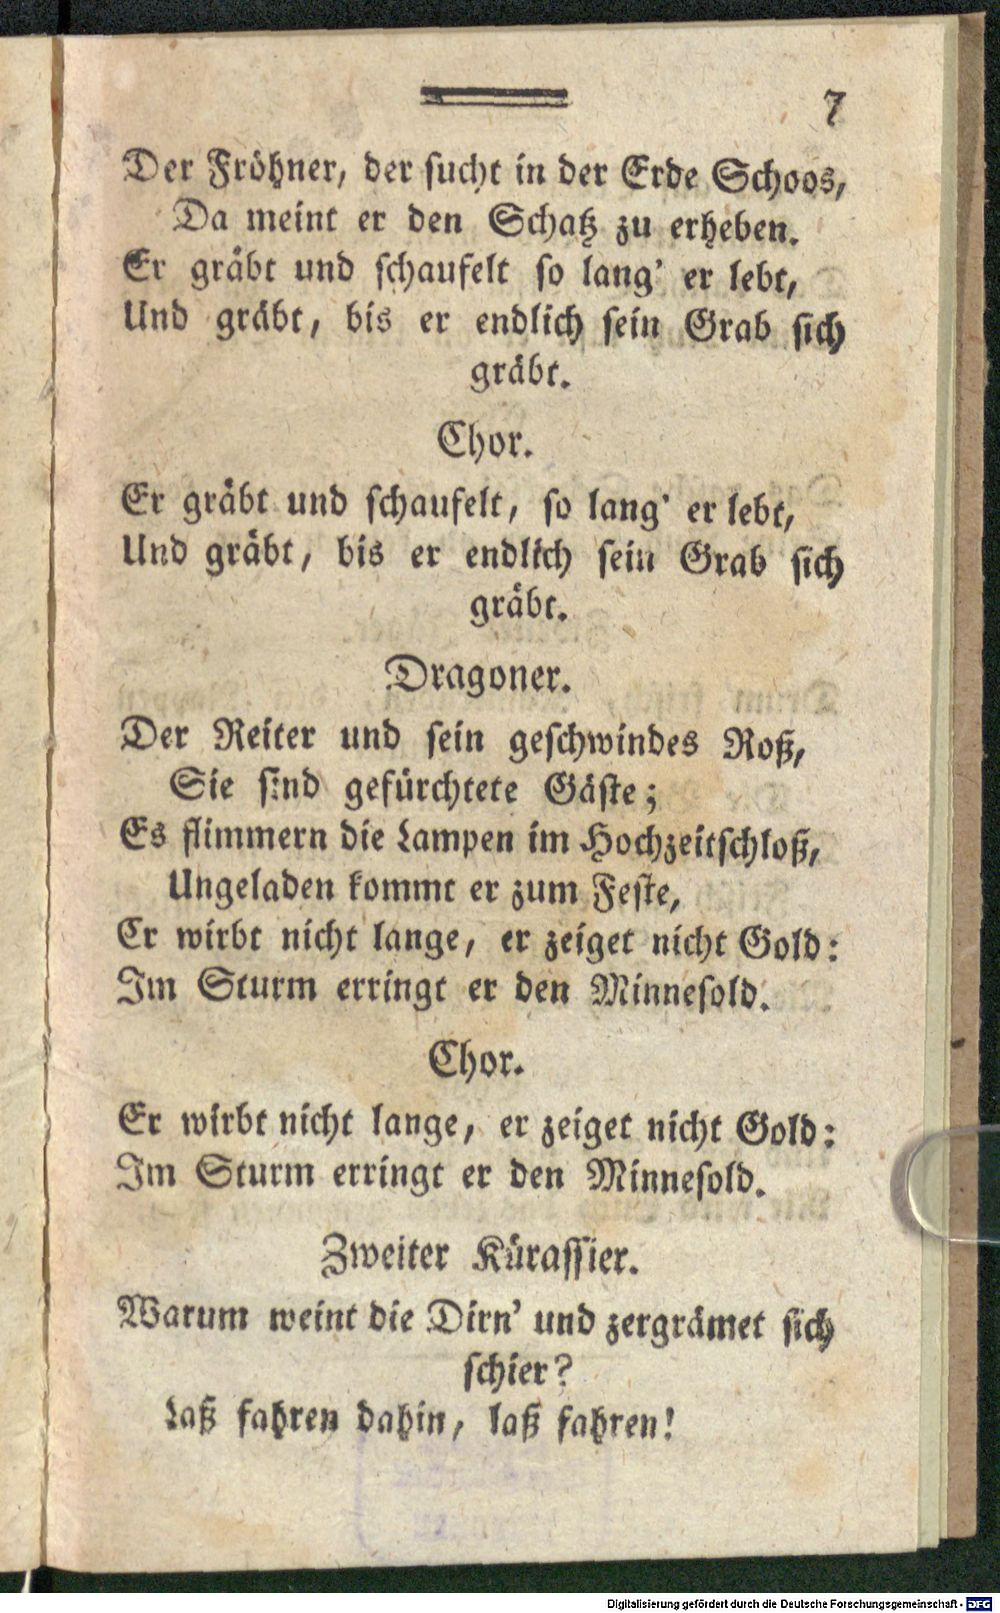 7
Der Fröhner, der sucht in der Erde Schoos,
Da meint er den Schatz zu erheben.
Er gräbt und schaufelt so lang' er lebt,
Und gräbt, bis er endlich sein Grab sich
gräbt.
Chor.
Er gräbt und schaufelt, so lang' er lebt,
Und gräbt, bis er endlich sein Grab sich
gräbt.
Dragoner.
Der Reiter und sein geschwindes Roß,
Sie sind gefürchtete Gäste;
Es flimmern die Lampen im Hochzeitschloß,
Ungeladen kommt er zum Feste,
Er wirbt nicht lange, er zeiget nicht Gold:
Im Sturm erringt er den Minnesold.
Chor.
Er wirbt nicht lange, er zeiget nicht Gold:
Im Sturm erringt er den Minnesold.
Zweiter Kürassier.
Warum weint die Dirn' und zergrämet sich
schier?
Laß fahren dahin, laß fahren!
Digitalisierung gefördert durch die Deutsche Forschungsgemeinschaft - DFG